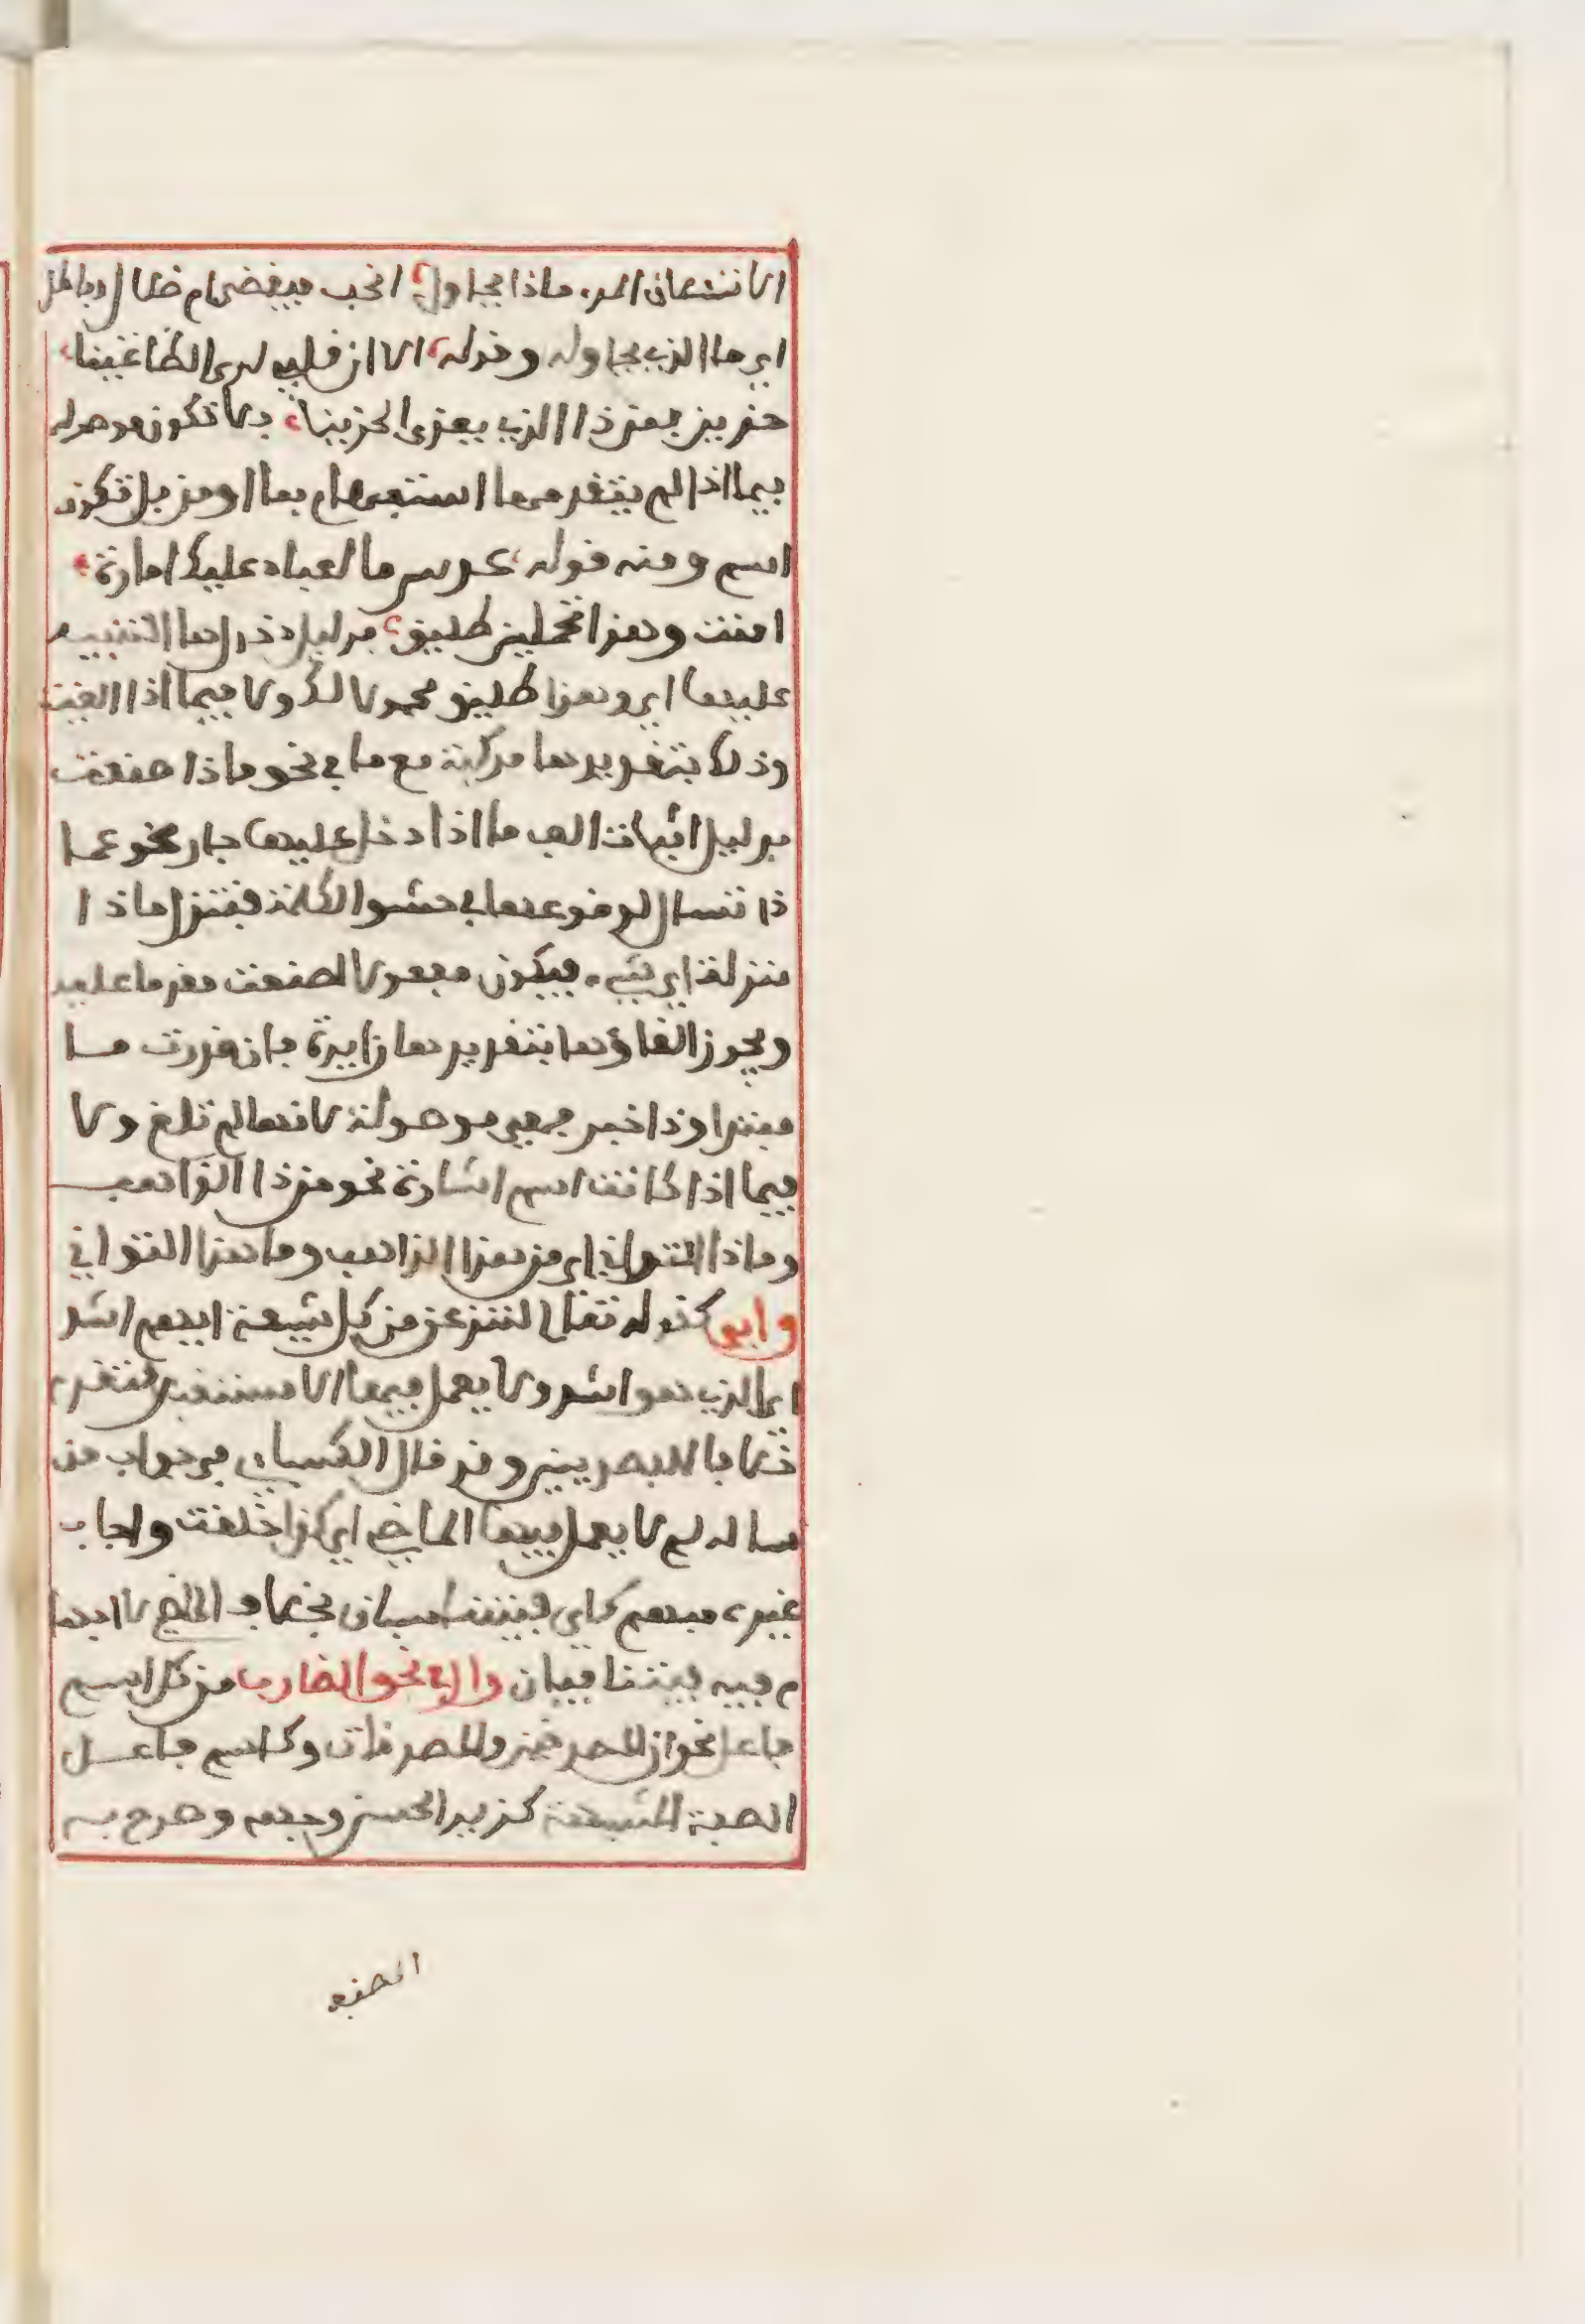 الا تسئلان المرء ماذا يحاول؟ انحب فيقضى ام ضلال وباطل
اي ما الذي يحاوله وقوله، الا ان قلبي لدى الظاعنينا،
حزين فمن ذا الذي يعزى الحزينا، فلا تكون موصولة
فيما اذا لم يتقدمها استفهام بما او من بل تكون
اسم ومنه قوله، عدس ما لعباد عليك امارة،
امنت وهذا تحملين طليق؛ بدليل دخول ها التنبيه
عليها اي وهذا طليق محمولا لك ولا فيما اذا الغيت
وذلك بتقديرها مركبة مع ما في نحو ماذا صنعت
بدليل اثبات الف ما اذا دخل عليها جار نحو عما
ذا تسال لوقوعها في حشو الكلمة فتنزل ماذا
منزلة اي شيء فيكون مفعولا لصنعت مقدما عليه
ويجوز الغاؤها بتقديرها زايدة فان قدرت ما
مبتدا وذا خبر فهي موصولة لانها لم تلغ ولا
فيما اذا كانت اسم اشارة نحو من ذا الذاهب
وماذا التواني اي من هذا الذاهب وما هذا التواني
واي كقوله تعلى لننزعن من كل شيعة ايهم اشد
اي الذي هو اشد ولا يعمل فيها الا مستقبل متقدم
خلافا للبصريين وقد قال الكسائي في جواب من
ساله لم لا يعمل فيها الماضي اي كذا خلقت واجاب
غيره مبهم كاي فيتناسبان بخلاف الماضي لا ابها
م فيه فيتنافيان وال في نحو الضارب من كل اسم
فاعل نحو ان المصدقين والمصدقات وكاسم فاعل
الصفة المشبهة كزيد الحسن وجهه وصرح به
المصنف